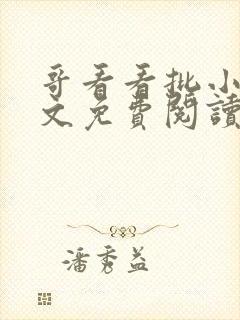 哥看看批小
文免費閱讀
潘秀益